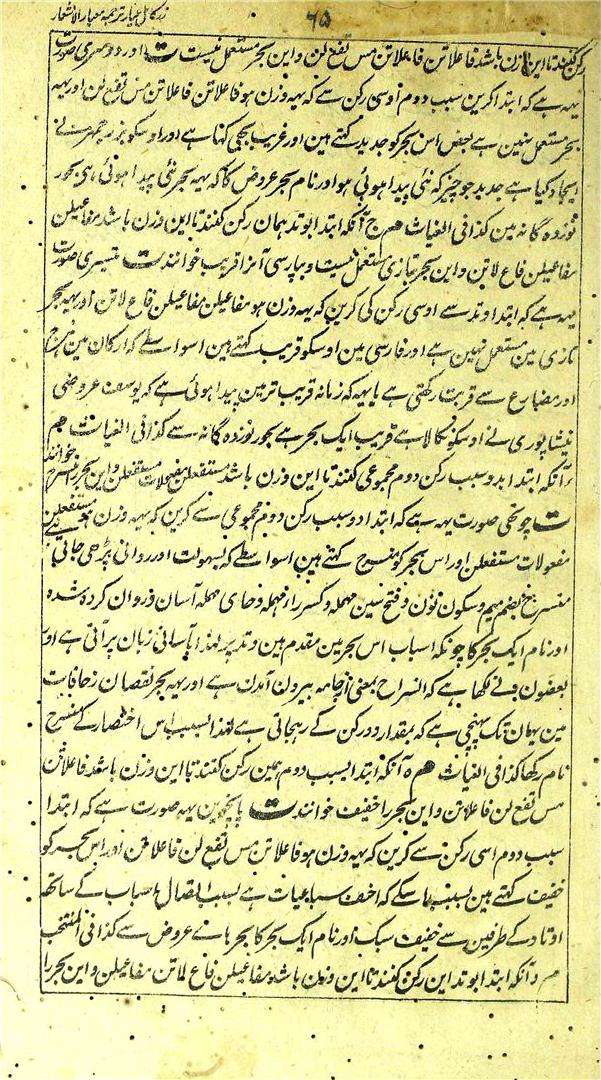 زر کامل عیار ترجمه معیار الاشعار
۶۵
رکن کنند تا این وزن باشد فاعلاتن فاعلاتن مس تفع لن و این بحر مستعمل نیست ت اور دوسری صورت
یہہ ہے کہ ابتدا کرین سبب دوم اوسی رکن سے کہ یہہ وزن ہو فاعلاتن فاعلاتن مس تفع لن اور یہہ
بحر مستعمل نہین ہے بعض اس بحر کو جدید کہتے ہین اور غریب بھی کہتا ہے اور اوسکو بزرجمہر نے
ایجاد کیا ہے جدید جو چیز کہ نئی پیدا ہوئی ہو اور نام بحر عروض کا کہ یہہ بحر نئی پیدا ہوئی ہی بحور
نوزدہ گانہ مین کذا فی الغیاث م ج آنکہ ابتدا بوتد ہمان رکن کنند تا این وزن باشد مفاعیلن
مفاعیلن فاع لاتن و این بحر بتازی مستعمل نیست و بپارسی آنرا قریب خوانند ت تیسری صورت
یہہ ہے کہ ابتدا وتد سے اوسی رکن کی کرین کہ یہہ وزن ہو مفاعیلن مفاعیلن فاع لاتن اور یہہ بحر
تازی مین مستعمل نہین ہے اور فارسی مین اوسکو قریب کہتے ہین اسواسطے کہ ارکان مین ہزج
اور مضارع سے قربت رکھتی ہے یا یہہ کہ زمانہ قریب تر مین پیدا ہوئی ہے کہ یوسف عروضی
نیشاپوری نے اوسکو نکالا ہے قریب ایک بحر ہے بحور نوزدہ گانہ سے کذا فی الغیاث م
آنکہ ابتدا بدو سبب رکن دوم مجموعی کنند تا این وزن باشد مستفعلن مفعولات مستفعلن و این بحر را منسرح خوانند
ت چوتھی صورت یہہ ہے کہ ابتدا دو سبب رکن دوم مجموعی سے کرین کہ یہہ وزن ہو مستفعلن
مفعولات مستفعلن اور اس بحر کو منسرح کہتے ہین اسواسطے کہ بسہولت اور روانی پڑھی جاتی
منسرح بضم میم و سکون نون و فتح سین مہملہ و کسر راء مہملہ و حای مہملہ آسان و روان کردہ شدہ
اور نام ایک بحر کا چونکہ اسباب اس بحر مین مقدم ہین وتد پر لہذا بآسانی زبان پر آتی ہے اور
بعضون نے لکھا ہے کہ انسراح بمعنی از جامہ بیرون آمدن ہے اور یہہ بحر نقصان زحافات
مین یہان تک پہنچی ہے کہ بمقدار دو رکن کے رہجاتی ہے لہذا بسبب اس اختصار کے منسرح
نام رکھا کذا فی الغیاث م ہ آنکہ ابتدا بسبب دوم ہمین رکن کنند تا این وزن باشد فاعلاتن
مس تفع لن فاعلاتن و این بحر را خفیف خوانند ت پانچوین یہہ صورت ہے کہ ابتدا
سبب دوم اسی رکن سے کرین کہ یہہ وزن ہو فاعلاتن مس تفع لن فاعلاتن اور اس بحر کو
خفیف کہتے ہین بسبب اسکے کہ اخف سباعیات ہے بسبب اتصال اسباب کے ساتھ
اوتاد کے طرفین سے خفیف سبک اور نام ایک بحر کا بحر ہائے عروض سے کذا فی المنتخب
م و آنکہ ابتدا بوتد این رکن کنند تا این وزن باشد مفاعیلن فاع لاتن مفاعیلن و این بحر را